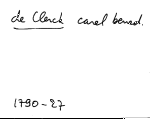 de Clerck carel bened.
1790-27